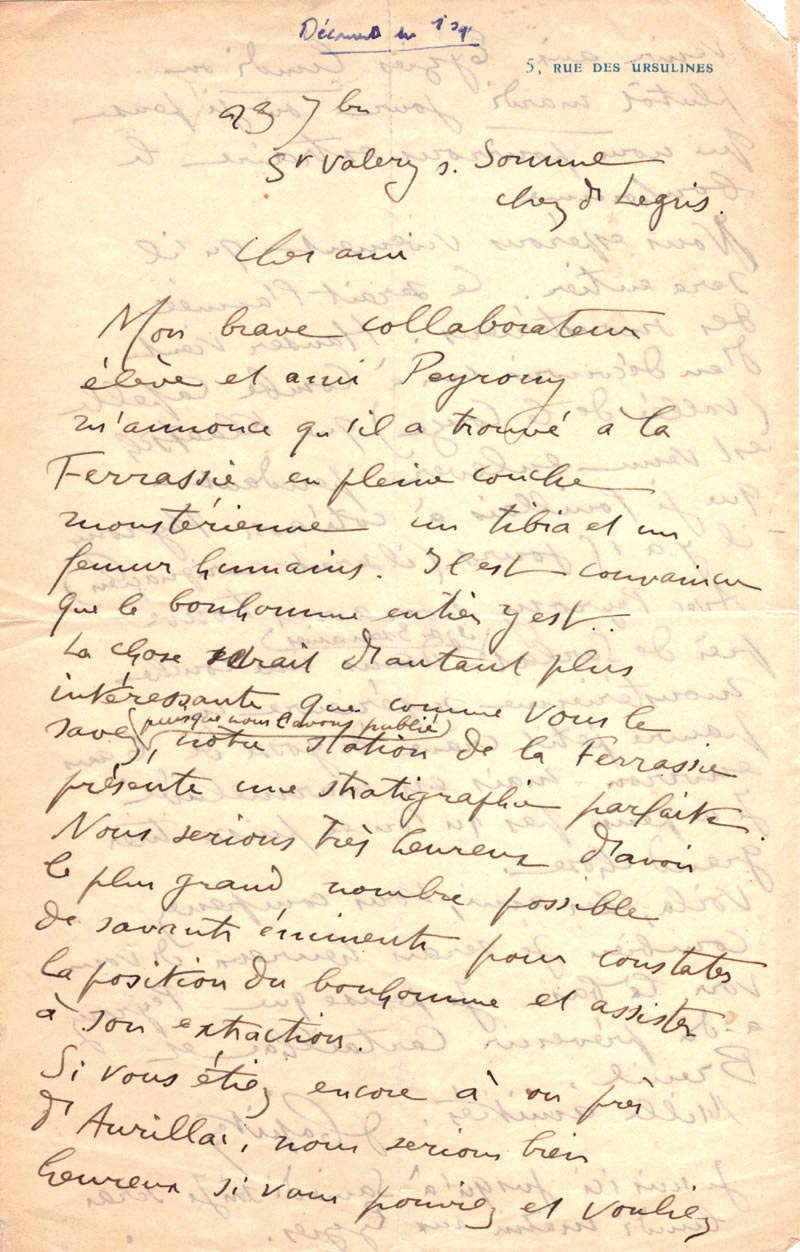 5, RUE DES URSULINES
23 7bre
St Valery s. Somme
chez Dr Legris.
Cher ami
Mon brave collaborateur
élève et ami Peyrony
m'annonce qu'il a trouvé à la
Ferrassie en pleine couche
moustérienne un tibia et un
femur humains. Il est convaincu
que le bonhomme entier y est.
La chose serait d'autant plus
intéressante que comme vous le
savez, (puisque nous l'avons publié)
notre station de la Ferrassie
présente une stratigraphie parfaite.
Nous serions très heureux d'avoir
le plus grand nombre possible
de savants éminents pour constater
la position du bonhomme et assister
à son extraction.
Si vous étiez encore à ou près
d'Aurillac, nous serions bien
heureux si vous pouviez et vouliez